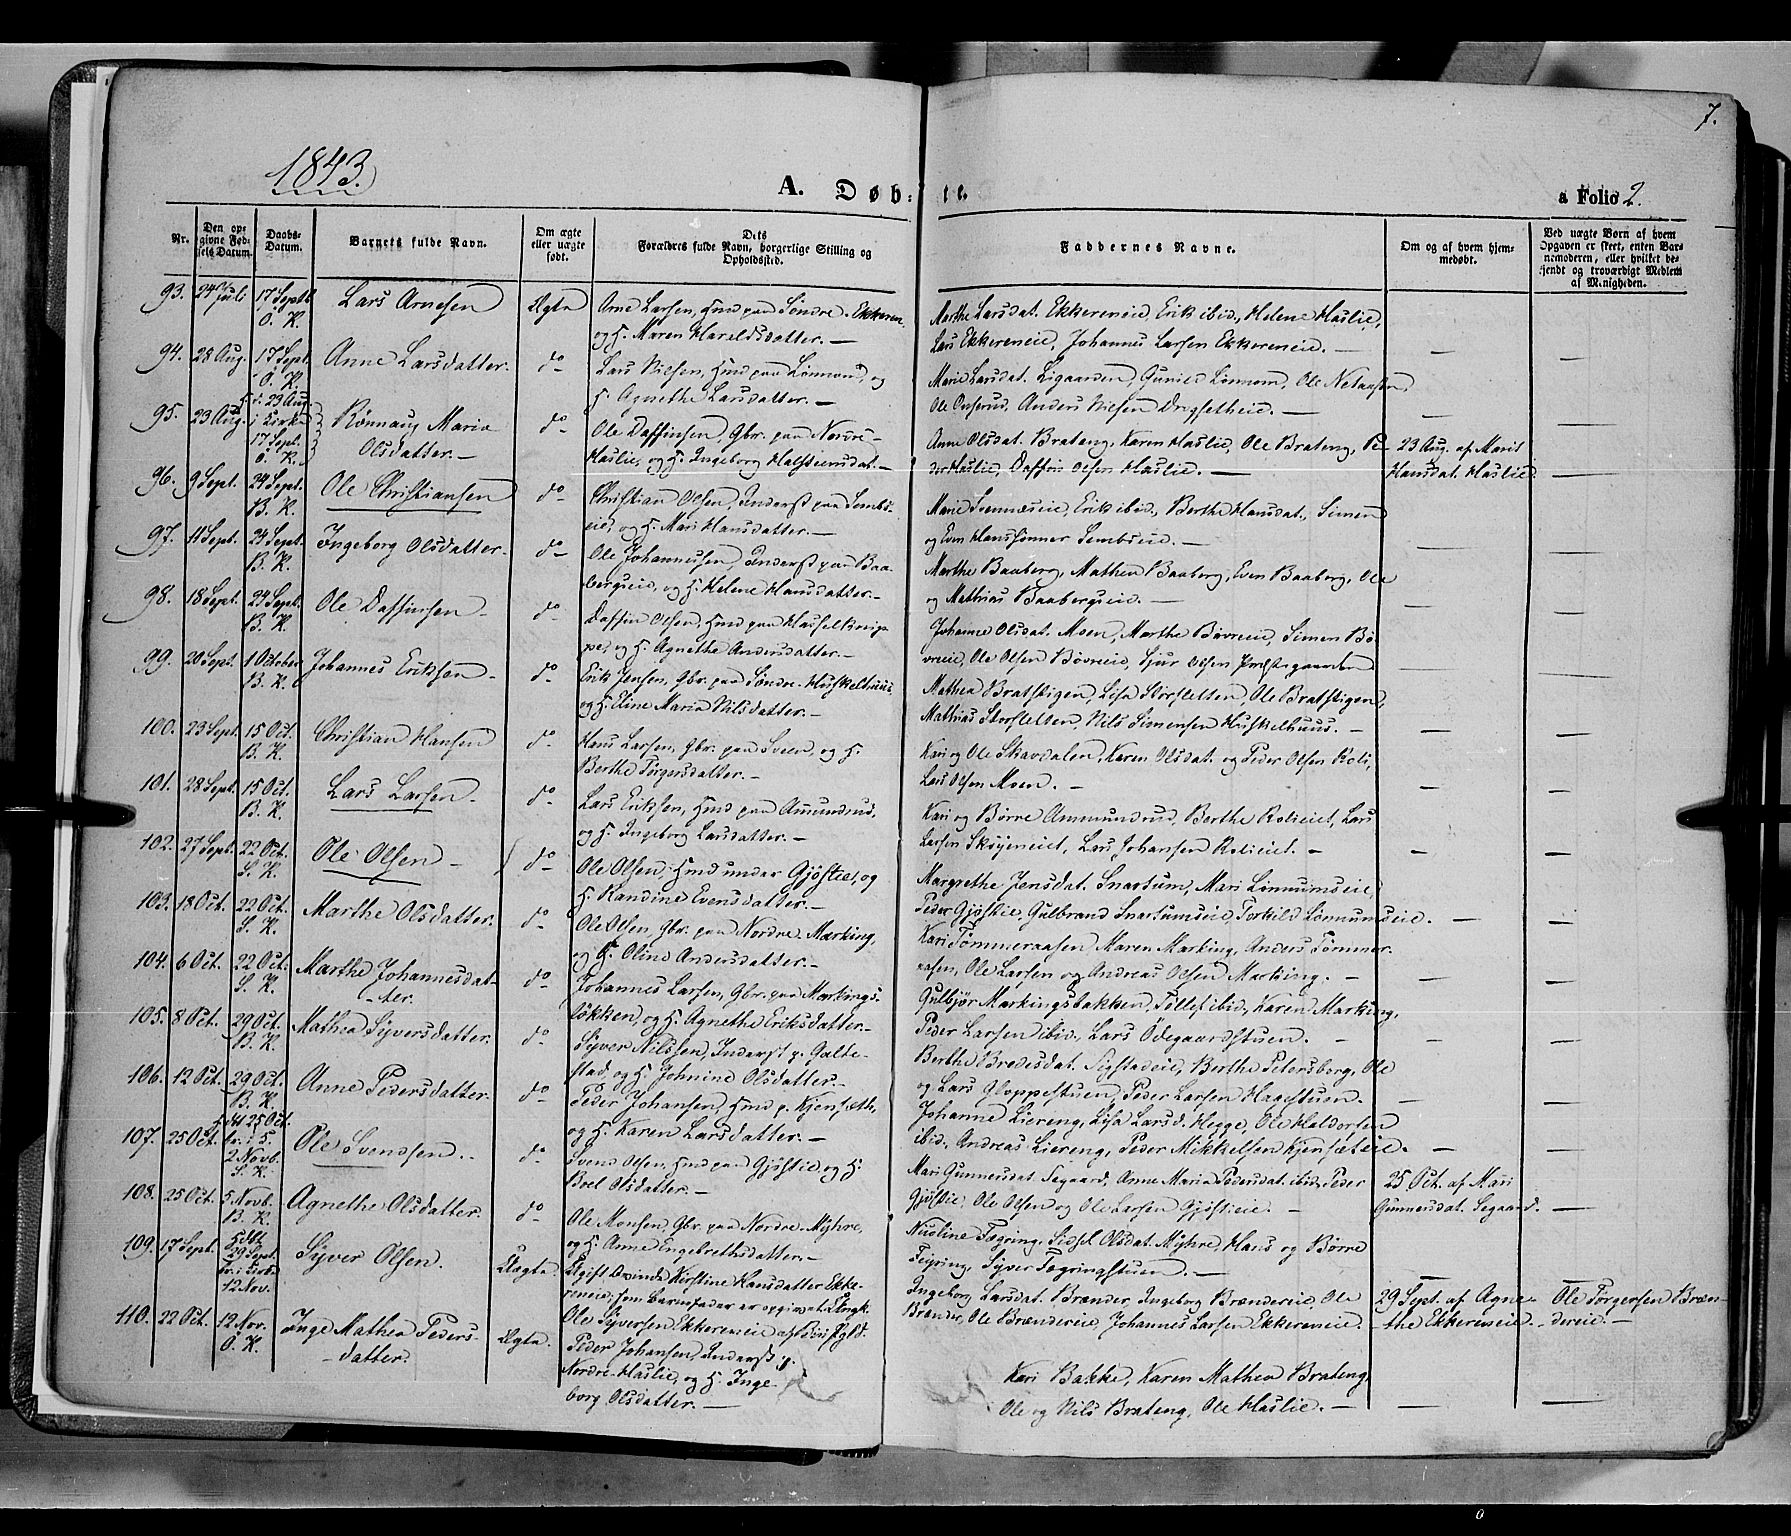 7.
1843.
A. Døbte.
a Folio 2.
Nr.
Den opgivne Fødsels Datum.
Daabs-Datum.
Barnets fulde Navn.
Om ægte eller uægte født.
Dets Forældres fulde Navn, borgerlige Stilling og Opholdssted.
Faddernes Navne.
Om og af hvem hjemmedøbt.
Ved uægte Børn af hvem Opgaven er skeet, enten Barnemoderen, eller hvilket bekjendt og troværdigt Medlem af Menigheden.
93. 24 Juli 17 Sept. Ö. K. Lars Arnesen Ægte Arne Larsen, Hmd paa Söndre-Ekkeren, og H. Maren Haraldsdatter. — Marthe Larsdat. Ekkereneie, Erik ibid., Helene Haslie, Lars Ekkereneie, Johannes Larsen Ekkereneie. — —
94. 28 Aug. 17 Sept. Ö. K. Anne Larsdatter. do Lars Nilsen, Hmd paa Lönnum, og H. Agnethe Larsdatter. — Marie Larsdat. Ligaarden, Gunild Linnom, Ole Onserud, Anders Nilsen — —
95. 23 Aug. H. d. 23 Aug. i Kirke 17 Sept. Ö. K. Rönnaug Maria Olsdatter. — do Ole Daffinsen, Gbr. paa Nordre-Haslie, og H. Ingeborg Halstensdat. — Anne Olsdat. Brateng, Karen Haslie, Ole Brateng, Peder Haslie, Daffin Olsen Haslie. — 23 Aug. af Marit Hansdat. Haslie. —
96. 9 Sept. 24 Sept. B. K. Ole Christiansen do Christian Olsen, Inderst paa Sembseie, og H. Mari Hansdatter. — Erik ibid, Berthe Hansdat., Simen og Even Hanssönner Sembseie. — —
97. 11 Sept. 24 Sept. B. K. Ingeborg Olsdatter. do Ole Johannessen, Inderst paa Baabergseie, og H. Helene Hansdatter. — Marthe Baaberg, Mathea Baaberg, Even Baaberg, Ole og Mathias Baabergseie. — —
98. 18 Sept. 24 Sept. B. K. Ole Daffinsen — do Daffin Olsen, Hmd paa og H. Agnethe Andersdatter. — Johanne Olsdat. Moen, Marthe Bövreie, Simen Bövreie, Ole Olsen Bövreie, Sjur Olsen Præstegaarden —
99. 20 Sept. 1 October B. K. Johannes Eriksen — do Erik Jensen, Gbr. paa Söndre-Huskelhuus, og H. Eline Maria Nilsdatter. — Mathea Bratstigen, Lisa Storsletten, Ole Bratstigen, Mathias Storsletten, Nils Simensen Huskelhuus. — —
100. 23 Sept. 15 Oct. B. K. Christian Hansen do Hans Larsen, Gbr. paa Sveen, og H. Berthe Törgersdatter. — Kari og Ole Skavdalen, Karen Olsdat. og Peder Olsen Roli, Lars Olsen Moen. — —
101. 28 Sept. 15 Oct. B. K. Lars Larsen. do Lars Eriksen, Hmd paa Amundrud, og H. Ingeborg Larsdatter. — Kari og Börre Ammundrud, Berthe Rolieiet, Lars Larsen Sköyeneiet, Lars Johansen Rolieiet. — —
102. 27 Sept. 22 Oct. S. K. Ole Olsen — do Ole Olsen, Hmd under Gjöstie, og H. Randine Evensdatter. — Margrethe Jensdat. Snartum, Mari Linnumseie, Peder Gjöstie, Gulbrand Snartumseie, Torkild Lönnumseie. —
103. 18 Oct. 22 Oct. S. K. Marthe Olsdatter. do Ole Olsen, Gbr. paa Nordre-Marking, og H. Oline Andersdatter. — Kari Tömmeraasen, Maren Marking, Anders Tömmeraasen, Ole Larsen og Andreas Olsen Marking. —
104. 6 Oct. 22 Oct. S. K. Marthe Johannesdatter. do Johannes Larsen, Gbr. paa Markingslökken, og H. Agnethe Eriksdatter. — Gulbjör Markingsbakken, Tollef ibid, Karen Marking, Peder Larsen ibid, Lars Ödegaardstuen. —
105. 8 Oct. 29 Oct. B. K. Mathea Syversdatter. do Syver Nilssen, Inderst p. Galtestad, og H. Johnine Olsdatter. — Berthe Bredesdat. Sigstadeie, Berthe Petersborg, Ole og Lars Gloppestuen, Peder Larsen Hagestuen. —
106. 12 Oct. 29 Oct. B. K. Anne Pedersdatter. do Peder Johansen, Hmd p. Kjenseth, og H. Karen Larsdatter. — Johanne Liereng, Lisa Larsd. Hegge, Ole Haldorsen ibid, Andreas Liereng, Peder Mikkelsen Kjensæteie. —
107. 25 Oct. 25 Oct. 2 Novb. S. K. Ole Svendsen. do Svend Olsen, Hmd paa Gjöstie, og H. Boel Olsdatter. — Mari Gunnersdat. Segaard, Anne Maria Pedersdat. ibid, Peder Gjöstie, Ole Olsen og Ole Larsen Gjöstieie. — 25 Oct. af Mari Gunnersdat. Segaard. —
108. 25 Oct. 5 Novb. B. K. Agnethe Olsdatter. do Ole Monsen, Gbr. paa Nordre-Myhre, og H. Anne Engebrethsdatter. — Nicoline Fegring, Sidsel Olsdat. Myhre, Hans og Börre Feiring, Syver Fegringstuen. — —
109. 17 Sept. Hdbt 29 Sept. 12 Nov. Syver Olsen. Uægte. Ugift Qvinde Kirstine Hansdatter Ekkereneie, som Barnefader er opgivet Ungk. Ole Syversen Ekkereneie af Biri Pgld. Ingeborg Larsdat. Brænder, Ingeborg Brændereie, Ole Brænder, Ole Brændereie, Johannes Larsen Ekkereneie. 29 Sept. af Agnethe Ekkereneie. — Ole Törgersen Brændereie. —
110. 22 Oct. 12 Nov. Ö. K. Inge Mathea Pedersdatter. Ægte. Peder Johansen, Inderst p. Nordre-Haslie, og H. Ingeborg Olsdatter. — Kari Bakke, Karen Mathea Brateng, Ole og Nils Brateng, Ole Haslie. — —
0